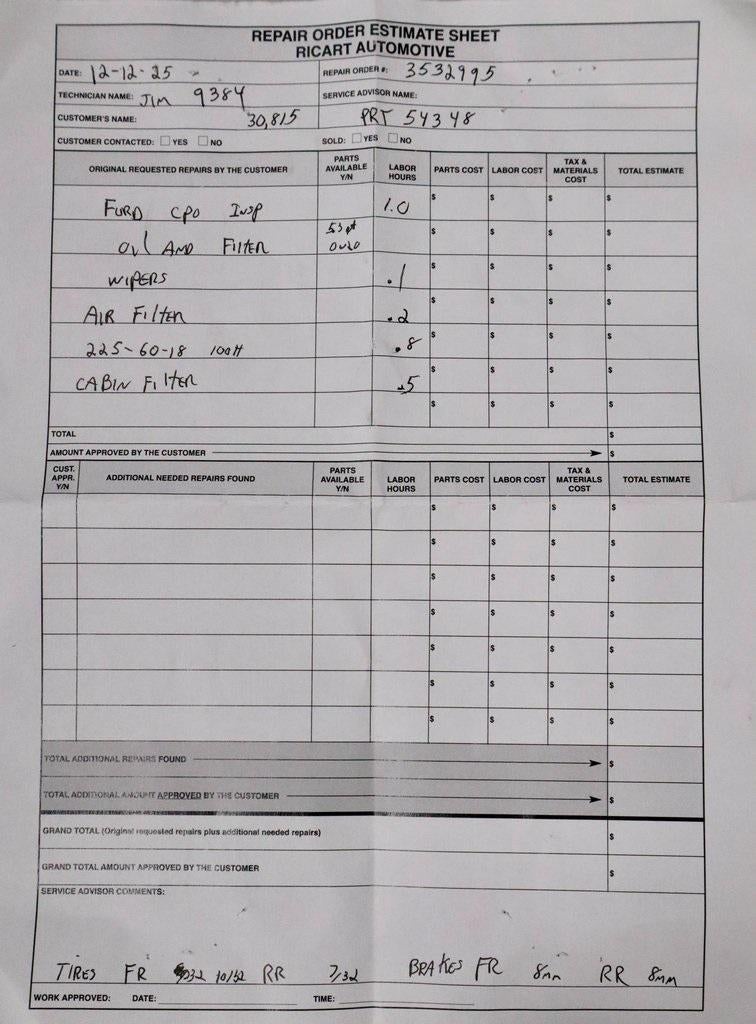 REPAIR ORDER ESTIMATE SHEET
RICART AUTOMOTIVE
DATE: 12-12-25 REPAIR ORDER #: 3532995
TECHNICIAN NAME: JIM 9384 SERVICE ADVISOR NAME:
CUSTOMER'S NAME: 30,815 PRT 54348
CUSTOMER CONTACTED: YES NO SOLD: YES NO
ORIGINAL REQUESTED REPAIRS BY THE CUSTOMER PARTS AVAILABLE Y/N LABOR HOURS PARTS COST LABOR COST TAX & MATERIALS COST TOTAL ESTIMATE
FORD CPO INSP 1.0 $ $ $ $
OIL AND FILTER 5.3 qt 0W20 $ $ $ $
WIPERS .1 $ $ $ $
AIR FILTER .2 $ $ $ $
225-60-18 100H .8 $ $ $ $
CABIN FILTER .5 $ $ $ $
$ $ $ $
TOTAL $
AMOUNT APPROVED BY THE CUSTOMER $
CUST. APPR. Y/N ADDITIONAL NEEDED REPAIRS FOUND PARTS AVAILABLE Y/N LABOR HOURS PARTS COST LABOR COST TAX & MATERIALS COST TOTAL ESTIMATE
$ $ $ $
$ $ $ $
$ $ $ $
$ $ $ $
$ $ $ $
$ $ $ $
$ $ $ $
TOTAL ADDITIONAL REPAIRS FOUND $
TOTAL ADDITIONAL AMOUNT APPROVED BY THE CUSTOMER $
GRAND TOTAL (Original requested repairs plus additional needed repairs) $
GRAND TOTAL AMOUNT APPROVED BY THE CUSTOMER $
SERVICE ADVISOR COMMENTS:
TIRES FR 10/32 RR 7/32 BRAKES FR 8mm RR 8mm
WORK APPROVED: DATE: TIME: